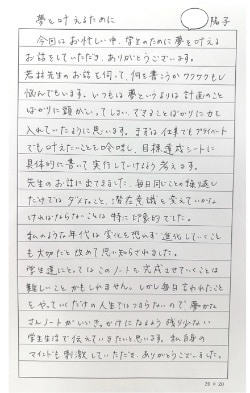 夢を叶えるために
陽子
今日はお忙しい中、学生のために夢を叶える
お話をしていただき、ありがとうございます。
若林先生のお話を伺って、何を書こうかワクワクもし
悩んでもいます。いつもは夢というよりは計画のこと
ばかりに頭がいってしまい、できることばかりに力を
入れていたように思います。まずは仕事でもプライベート
でも叶えたいことを吟味し、目標達成シートに
具体的に書いて実行していけるよう考えます。
先生のお話に出てきました、毎日同じことの繰返し
だけではダメなこと、潜在意識を変えていかな
ければならないことは特に印象的でした。
私のような年代は変化を恐れず進化していくこと
も大切だと改めて思い知らされました。
学生達にとってはこのノートを完成させていくことは
難しいことかもしれません。しかし毎日言われたこと
をやっていくだけの人生ではつまらないので夢かな
さんノートがいいきっかけになるよう残り少ない
学生生活で伝えていきたいと思います。私自身の
マインドも刺激していただき、ありがとうございました。
20×20